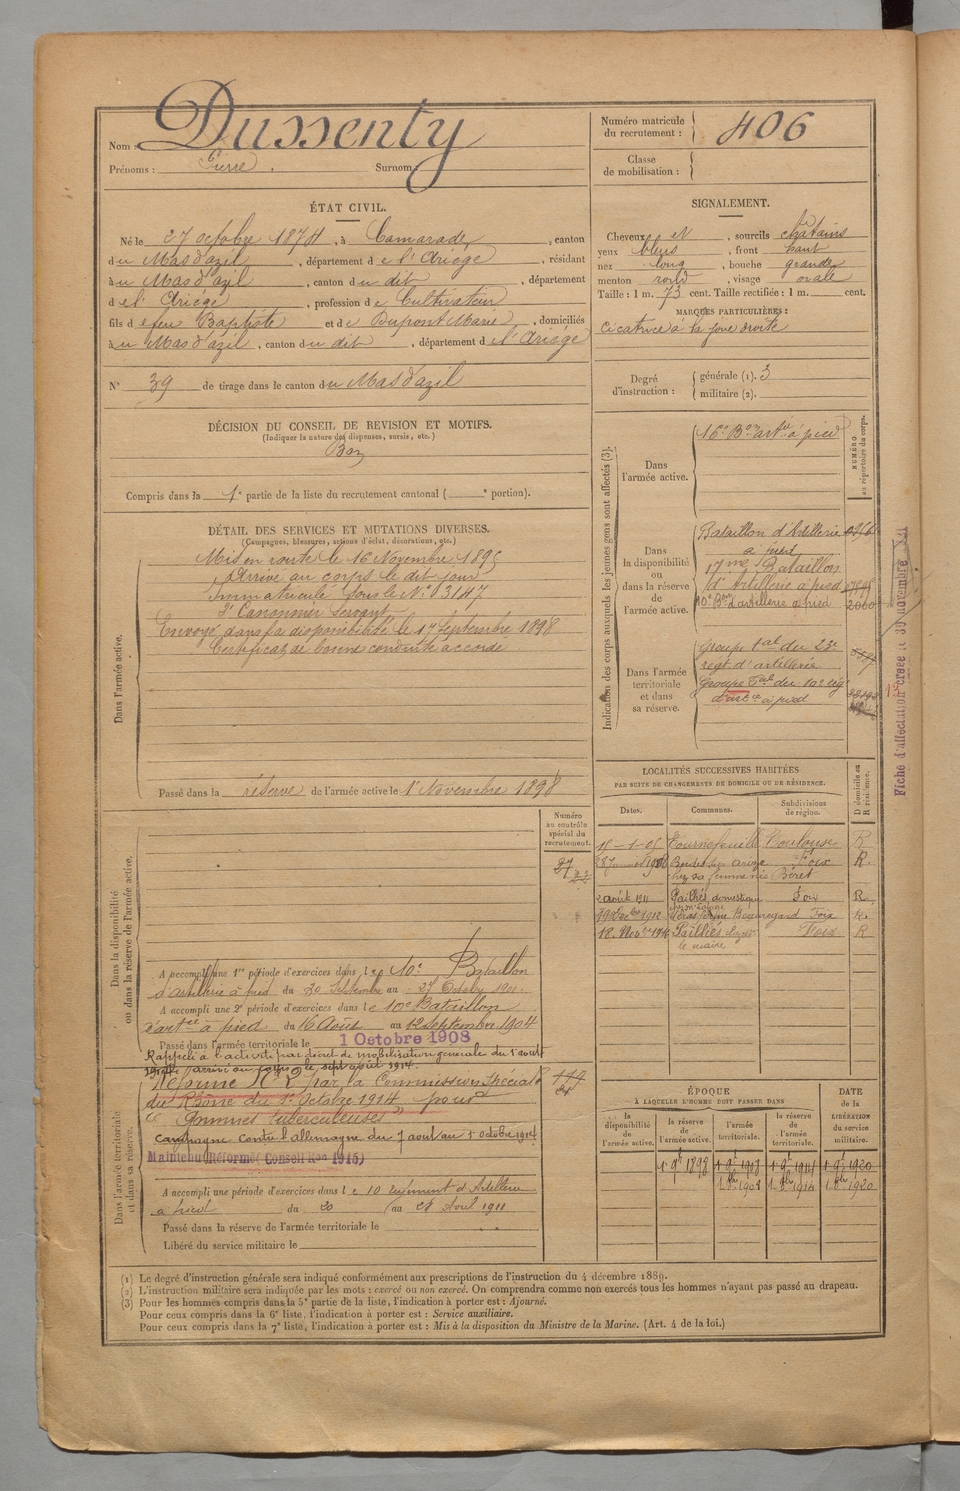 Nom : Dussenty
Prénoms : Pierre. Surnom :
Numéro matricule du recrutement : 406
Classe de mobilisation :
ÉTAT CIVIL.
Né le 27 octobre 1874, à Camarade, canton
du Mas d'azil, département de l'Ariège, résidant
à u Mas d'azil, canton du dit, département
de l'Ariège, profession de Cultivateur
fils de feu Baptiste et de Dupont Marie, domiciliés
à u Mas d'azil, canton du dit, département de l'Ariège
N° 39 de tirage dans le canton du Mas d'azil
SIGNALEMENT.
Cheveux et, sourcils châtains
yeux bleus, front haut
nez long, bouche grande
menton rond, visage ovale
Taille : 1 m. 73 cent. Taille rectifiée : 1 m. cent.
MARQUES PARTICULIÈRES :
Cicatrice à la joue droite
Degré d'instruction : générale (1). 3
militaire (2).
DÉCISION DU CONSEIL DE REVISION ET MOTIFS.
(Indiquer la nature des dispenses, sursis, etc.)
Bon
Compris dans la 1e partie de la liste du recrutement cantonal ( e portion).
DÉTAIL DES SERVICES ET MUTATIONS DIVERSES.
(Campagnes, blessures, actions d'éclat, décorations, etc.)
Dans l'armée active.
Mis en route le 16 Novembre 1895
Arrivé au corps le dit jour
Immatriculé sous le N° 3147
2e Canonnier Servant
Envoyé dans la disponibilité le 17 Septembre 1898
Certificat de bonne conduite accordé
Passé dans la réserve de l'armée active le 1er Novembre 1898
Indication des corps auxquels les jeunes gens sont affectés (3).
NUMÉRO au répertoire du corps.
Dans l'armée active.
16e Bon artie à pied
Dans la disponibilité ou dans la réserve de l'armée active.
Bataillon d'Artillerie
à pied
17me Bataillon
d'Artillerie à pied
10e Bon d'artillerie à pied 2060
Dans l'armée territoriale et dans sa réserve.
Groupe Tal du 23e
régt d'artillerie
Groupe Tal du 10e rég
d'artie à pied
Fiche d'affectation créée le 30 novembre
LOCALITÉS SUCCESSIVES HABITÉES
PAR SUITE DE CHANGEMENTS DE DOMICILE OU DE RÉSIDENCE.
Dates. Communes. Subdivisions de région. D domicile ou R résidence.
Tournefeuille Toulouse R
Foix R.
chez sa femme née Béret
2 août 1911 Pailhès, domestique Foix R
Beauregard Foix R.
18 Novbre 1914 Pailhès Foix R
le maire
Dans la disponibilité ou dans la réserve de l'armée active.
Numéro au contrôle spécial du recrutement.
A accompli une 1re période d'exercices dans le 10e Bataillon
d'artillerie à pied du 20 Septembre au 17 Octobre 1901.
A accompli une 2e période d'exercices dans le 10e Bataillon
d'artie à pied du 16 Août au 12 Septembre 1904
Passé dans l'armée territoriale le 1 Octobre 1908
Rappelé à l'activité par décret de mobilisation générale du 1er août
1914. arrivé au corps le sept août 1914.
Dans l'armée territoriale et dans sa réserve.
Réformé N° 2 par la Commission Spéciale
du Rhône du 1er Octobre 1914 pour
"Gommes tuberculeuses"
Campagne contre l'Allemagne du 7 août au 1 octobre 1914
Maintenu Réformé (Conseil Ron 1915)
A accompli une période d'exercices dans le 10 régiment d'Artillerie
à pied du 20 au 28 Avril 1911
Passé dans la réserve de l'armée territoriale le
Libéré du service militaire le
ÉPOQUE
À LAQUELLE L'HOMME DOIT PASSER DANS
DATE de la LIBÉRATION du service militaire.
la disponibilité de l'armée active. la réserve de l'armée active. l'armée territoriale. la réserve de l'armée territoriale.
1 9bre 1898 1 9bre 1908 1 9bre 1914 1 9bre 1920
1 8bre 1908 1 8bre 1914 1 8bre 1920
(1) Le degré d'instruction générale sera indiqué conformément aux prescriptions de l'instruction du 4 décembre 1889.
(2) L'instruction militaire sera indiquée par les mots : exercé ou non exercé. On comprendra comme non exercés tous les hommes n'ayant pas passé au drapeau.
(3) Pour les hommes compris dans la 5e partie de la liste, l'indication à porter est : Ajourné.
Pour ceux compris dans la 6e liste, l'indication à porter est : Service auxiliaire.
Pour ceux compris dans la 7e liste, l'indication à porter est : Mis à la disposition du Ministre de la Marine. (Art. 4 de la loi.)